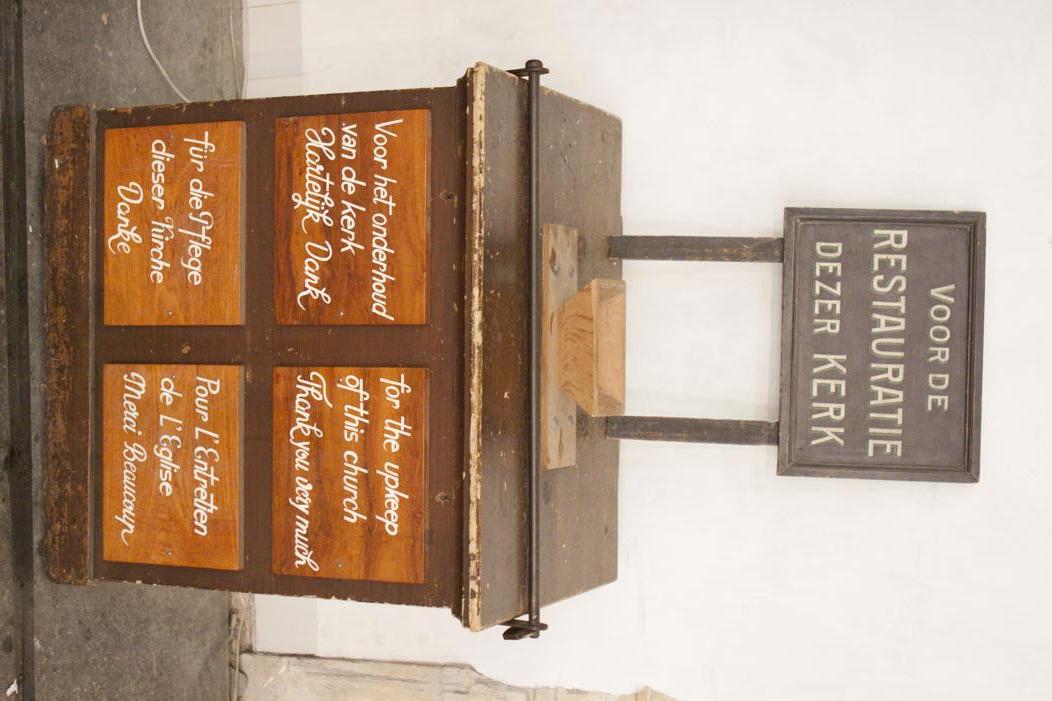 VOOR DE
RESTAURATIE
DEZER KERK
Voor het onderhoud
van de kerk
Hartelijk Dank
for the upkeep
of this church
Thank you very much
für die Pflege
dieser Kirche
Danke
Pour L'Entretien
de L'Eglise
Merci Beaucoup